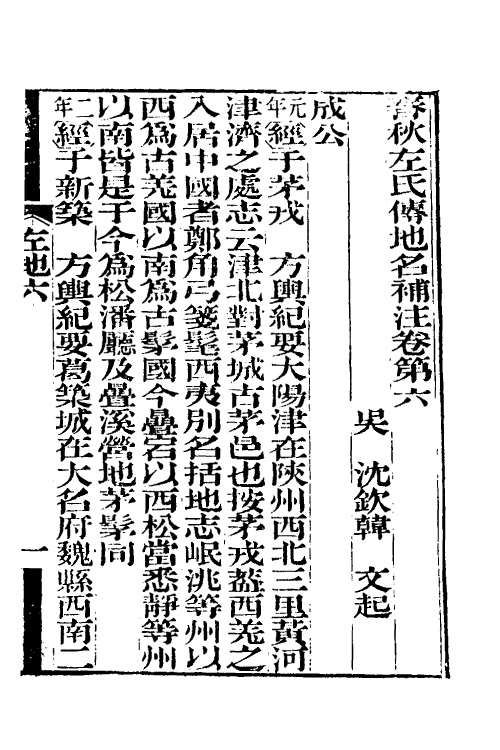 春秋左氏傳地名補注卷第六
吳　沈欽韓　文起
成公
元年經于茅戎　方輿紀要大陽津在陝州西北三里黃河
津濟之處志云津北對茅城古茅邑也按茅戎蓋西羌之
入居中國者鄭角弓箋髦西夷別名括地志岷洮等州以
西為古羌國以南為古髳國今疊宕以西松當悉靜等州
以南皆是于今為松潘廳及疊溪營地茅髳同
二年經于新築　方輿紀要葛築城在大名府魏縣西南二
左地六
一